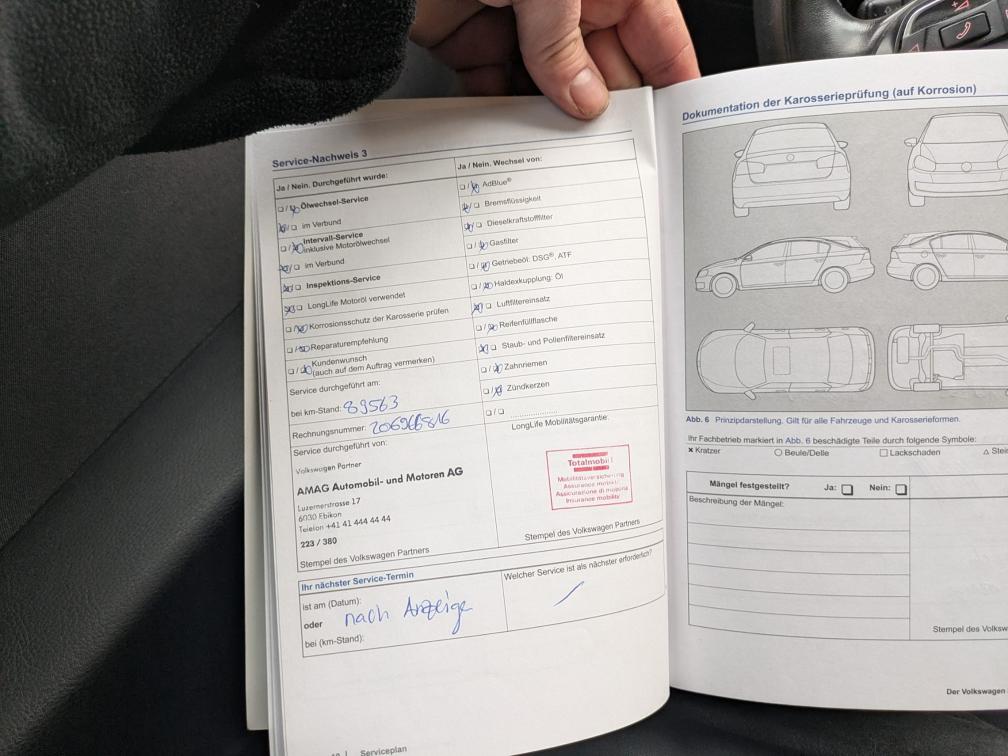 Service-Nachweis 3
Ja / Nein. Durchgeführt wurde:
❏ / ❏ Ölwechsel-Service
❏ / ❏ im Verbund
❏ / ❏ Intervall-Service
inklusive Motorölwechsel
❏ / ❏ im Verbund
❏ / ❏ Inspektions-Service
❏ / ❏ LongLife Motoröl verwendet
❏ / ❏ Korrosionsschutz der Karosserie prüfen
❏ / ❏ Reparaturempfehlung
❏ / ❏ Kundenwunsch
(auch auf dem Auftrag vermerken)
Service durchgeführt am:
bei km-Stand: 89563
Rechnungsnummer: 206966816
Service durchgeführt von:
Volkswagen Partner
AMAG Automobil- und Motoren AG
Luzernerstrasse 17
6030 Ebikon
Telefon +41 41 444 44 44
223 / 380
Stempel des Volkswagen Partners
Ja / Nein. Wechsel von:
❏ / ❏ AdBlue®
❏ / ❏ Bremsflüssigkeit
❏ / ❏ Dieselkraftstofffilter
❏ / ❏ Gasfilter
❏ / ❏ Getriebeöl: DSG®, ATF
❏ / ❏ Haldexkupplung: Öl
❏ / ❏ Luftfiltereinsatz
❏ / ❏ Reifenfüllflasche
❏ / ❏ Staub- und Pollenfiltereinsatz
❏ / ❏ Zahnriemen
❏ / ❏ Zündkerzen
❏ / ❏ ....................
LongLife Mobilitätsgarantie:
Totalmobil
Mobilitätsversicherung
Assurance mobilité
Assicurazione di mobilità
Insurance mobility
Stempel des Volkswagen Partners
Ihr nächster Service-Termin
ist am (Datum):
oder nach Anzeige
bei (km-Stand):
Welcher Service ist als nächster erforderlich?
Serviceplan
Dokumentation der Karosserieprüfung (auf Korrosion)
Abb. 6 Prinzipdarstellung. Gilt für alle Fahrzeuge und Karosserieformen.
Ihr Fachbetrieb markiert in Abb. 6 beschädigte Teile durch folgende Symbole:
× Kratzer ○ Beule/Delle □ Lackschaden △ Stei
Mängel festgestellt? Ja: ❏ Nein: ❏
Beschreibung der Mängel:
Stempel des Volksw
Der Volkswagen